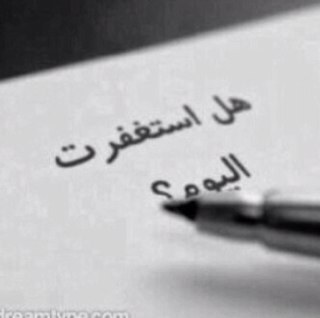 هل استغفرت
اليوم؟
dreamtype.com